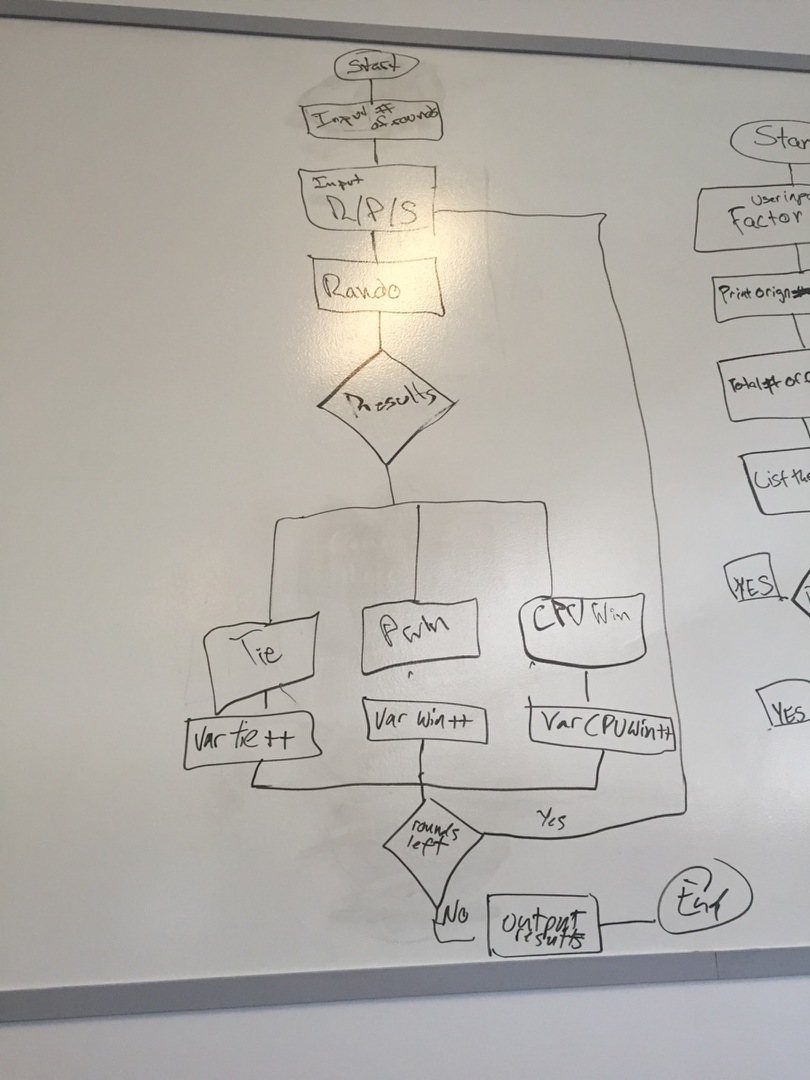 Start
Input #
of rounds
Input
R/P/S
Rando
Results
Tie
Pwin
CPU Win
Var tie ++
Var win ++
Var CPU win ++
rounds
left
Yes
No
output
results
End
Star
User inp
Factor
Print orign#
Total # of
List the
YES
YES